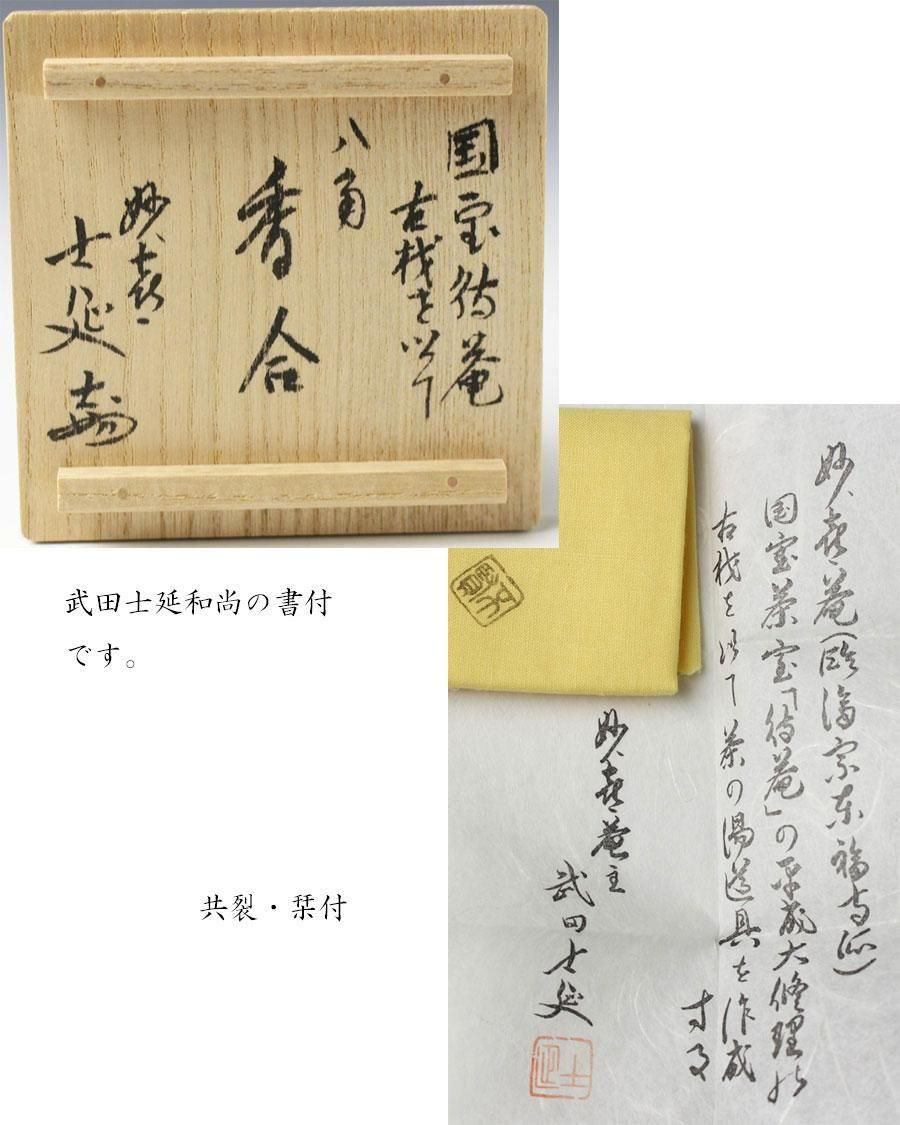 国宝待菴
古材を以て
八角
香合
妙喜
士延
武田士延和尚の書付
です。
共裂・栞付
妙喜菴(臨済宗東福寺派)
国宝茶室「待菴」の平成大修理の
古材を以て茶の湯道具を作成
する
妙喜菴主
武田士延